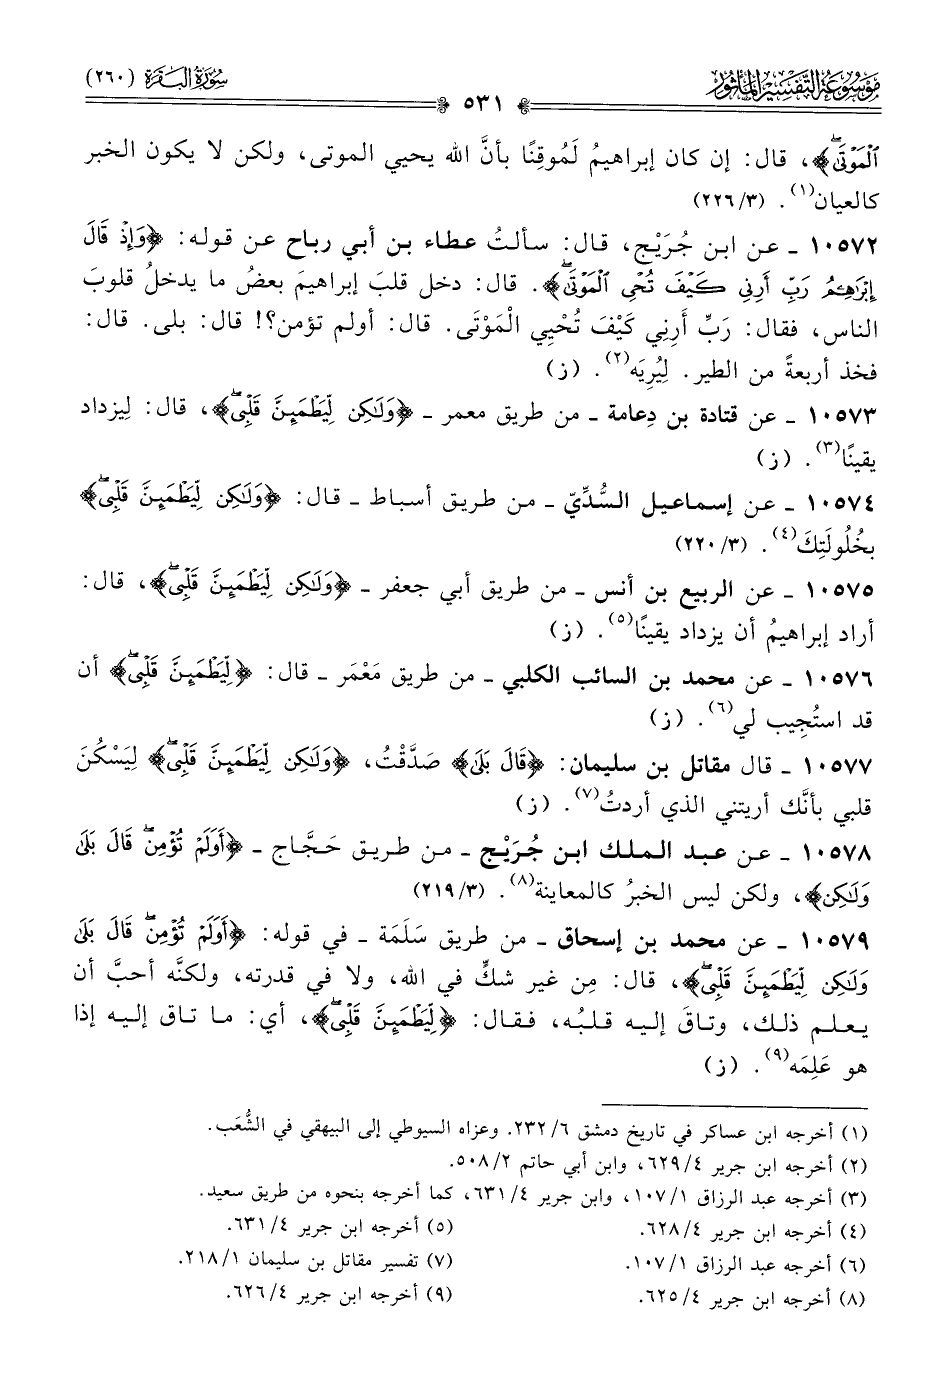 مَوْسُوعَة التَّفْسِير المَأْثُور
٥٣١
سُورَةُ البَقَرَة (٢٦٠)
ٱلْمَوْتَىٰۖ﴾، قال: إن كان إبراهيمُ لَمُوقِنًا بأنَّ الله يحيي الموتى، ولكن لا يكون الخبر
كالعيان(١). (٢٢٦/٣)
١٠٥٧٢ ـ عن ابن جُرَيْج، قال: سألتُ عطاء بن أبي رباح عن قوله: ﴿وَإِذْ قَالَ
إِبْرَٰهِـۧمُ رَبِّ أَرِنِي كَيْفَ تُحْيِ ٱلْمَوْتَىٰۖ﴾. قال: دخل قلبَ إبراهيمَ بعضُ ما يدخلُ قلوبَ
الناس، فقال: رَبِّ أَرِنِي كَيْفَ تُحْيِي الْمَوْتَى. قال: أولم تؤمن؟! قال: بلى. قال:
فخذ أربعةً من الطير. لِيُرِيَه(٢). (ز)
١٠٥٧٣ ـ عن قتادة بن دِعامة ـ من طريق معمر ـ ﴿وَلَٰكِن لِّيَطْمَئِنَّ قَلْبِيۖ﴾، قال: لِيزداد
يقينًا(٣). (ز)
١٠٥٧٤ ـ عن إسماعيل السُّدِّيّ ـ من طريق أسباط ـ قال: ﴿وَلَٰكِن لِّيَطْمَئِنَّ قَلْبِيۖ﴾
بخُلُولَتِكَ(٤). (٢٢٠/٣)
١٠٥٧٥ ـ عن الربيع بن أنس ـ من طريق أبي جعفر ـ ﴿وَلَٰكِن لِّيَطْمَئِنَّ قَلْبِيۖ﴾، قال:
أراد إبراهيمُ أن يزداد يقينًا(٥). (ز)
١٠٥٧٦ ـ عن محمد بن السائب الكلبي ـ من طريق مَعْمَر ـ قال: ﴿لِّيَطْمَئِنَّ قَلْبِيۖ﴾ أن
قد استُجِيب لي(٦). (ز)
١٠٥٧٧ ـ قال مقاتل بن سليمان: ﴿قَالَ بَلَىٰ﴾ صَدَّقْتُ، ﴿وَلَٰكِن لِّيَطْمَئِنَّ قَلْبِيۖ﴾ لِيَسْكُنَ
قلبي بأنَّك أريتني الذي أردتُ(٧). (ز)
١٠٥٧٨ ـ عن عبد الملك ابن جُرَيْج ـ من طريق حَجَّاج ـ ﴿أَوَلَمْ تُؤْمِنۖ قَالَ بَلَىٰ
وَلَٰكِن﴾، ولكن ليس الخبرُ كالمعاينة(٨). (٢١٩/٣)
١٠٥٧٩ ـ عن محمد بن إسحاق ـ من طريق سَلَمَة ـ في قوله: ﴿أَوَلَمْ تُؤْمِنۖ قَالَ بَلَىٰ
وَلَٰكِن لِّيَطْمَئِنَّ قَلْبِيۖ﴾، قال: مِن غير شكٍّ في الله، ولا في قدرته، ولكنَّه أحبَّ أن
يعلم ذلك، وتاقَ إليه قلبُه، فقال: ﴿لِّيَطْمَئِنَّ قَلْبِيۖ﴾، أي: ما تاق إليه إذا
هو عَلِمَه(٩). (ز)
(١) أخرجه ابن عساكر في تاريخ دمشق ٢٣٢/٦. وعزاه السيوطي إلى البيهقي في الشُّعَب.
(٢) أخرجه ابن جرير ٦٢٩/٤، وابن أبي حاتم ٥٠٨/٢.
(٣) أخرجه عبد الرزاق ١٠٧/١، وابن جرير ٦٣١/٤، كما أخرجه بنحوه من طريق سعيد.
(٤) أخرجه ابن جرير ٦٢٨/٤. (٥) أخرجه ابن جرير ٦٣١/٤.
(٦) أخرجه عبد الرزاق ١٠٧/١. (٧) تفسير مقاتل بن سليمان ٢١٨/١.
(٨) أخرجه ابن جرير ٦٢٥/٤. (٩) أخرجه ابن جرير ٦٢٦/٤.